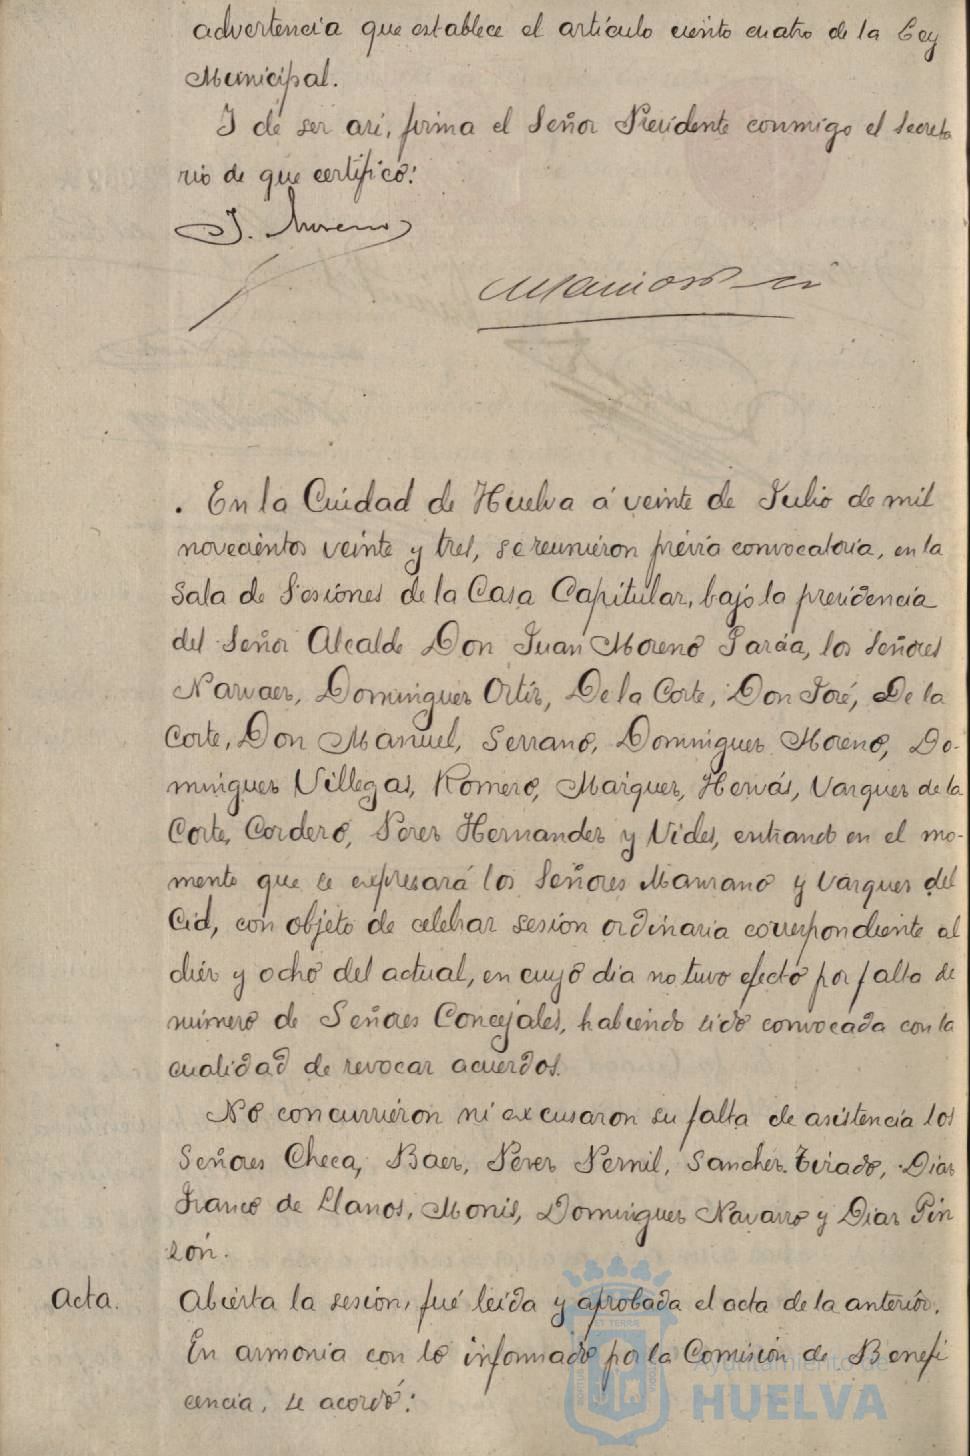 advertencia que establece el artículo ciento cuatro de la Ley
Municipal.
Y de ser así, firma el Señor Presidente conmigo el Secreta
rio de que certifico:
J. Moreno
. En la Ciudad de Huelva á veinte de Julio de mil
novecientos veinte y tres, se reunieron prévia convocatoria, en la
Sala de Sesiones de la Casa Capitular, bajo la presidencia
del Señor Alcalde Don Juan Moreno García, los Señores
Narvaez, Dominguez Ortíz, De la Corte, Don José, De la
Corte, Don Manuel, Serrano, Dominguez Moreno, Do-
minguez Villegas, Romero, Marquez, Hervás, Vazquez de la
Corte, Cordero, Perez Hernandez y Vides, entrando en el mo-
mento que se expresará los Señores Manzano y Vazquez del
Cid, con objeto de celebrar sesión ordinaria correspondiente al
diéz y ocho del actual, en cuyo dia no tuvo efecto por falta de
número de Señores Concejales, habiendo sido convocada con la
cualidad de revocar acuerdos.
No concurrieron ni excusaron su falta de asistencia los
Señores Checa, Baez, Perez Pernil, Sanchez Tirado, Diaz
Franco de Llanos, Monís, Dominguez Navarro y Diaz Pin
zón.
Acta.
Abierta la sesión, fué leída y aprobada el acta de la anterior.
En armonia con lo informado por la Comisión de Benefi
cencia, se acordó:
Ayuntamiento de
HUELVA